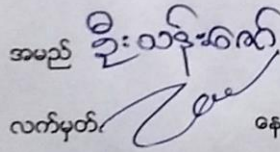 အမည် ဦးသန်းဇော်
လက်မှတ်
နေ